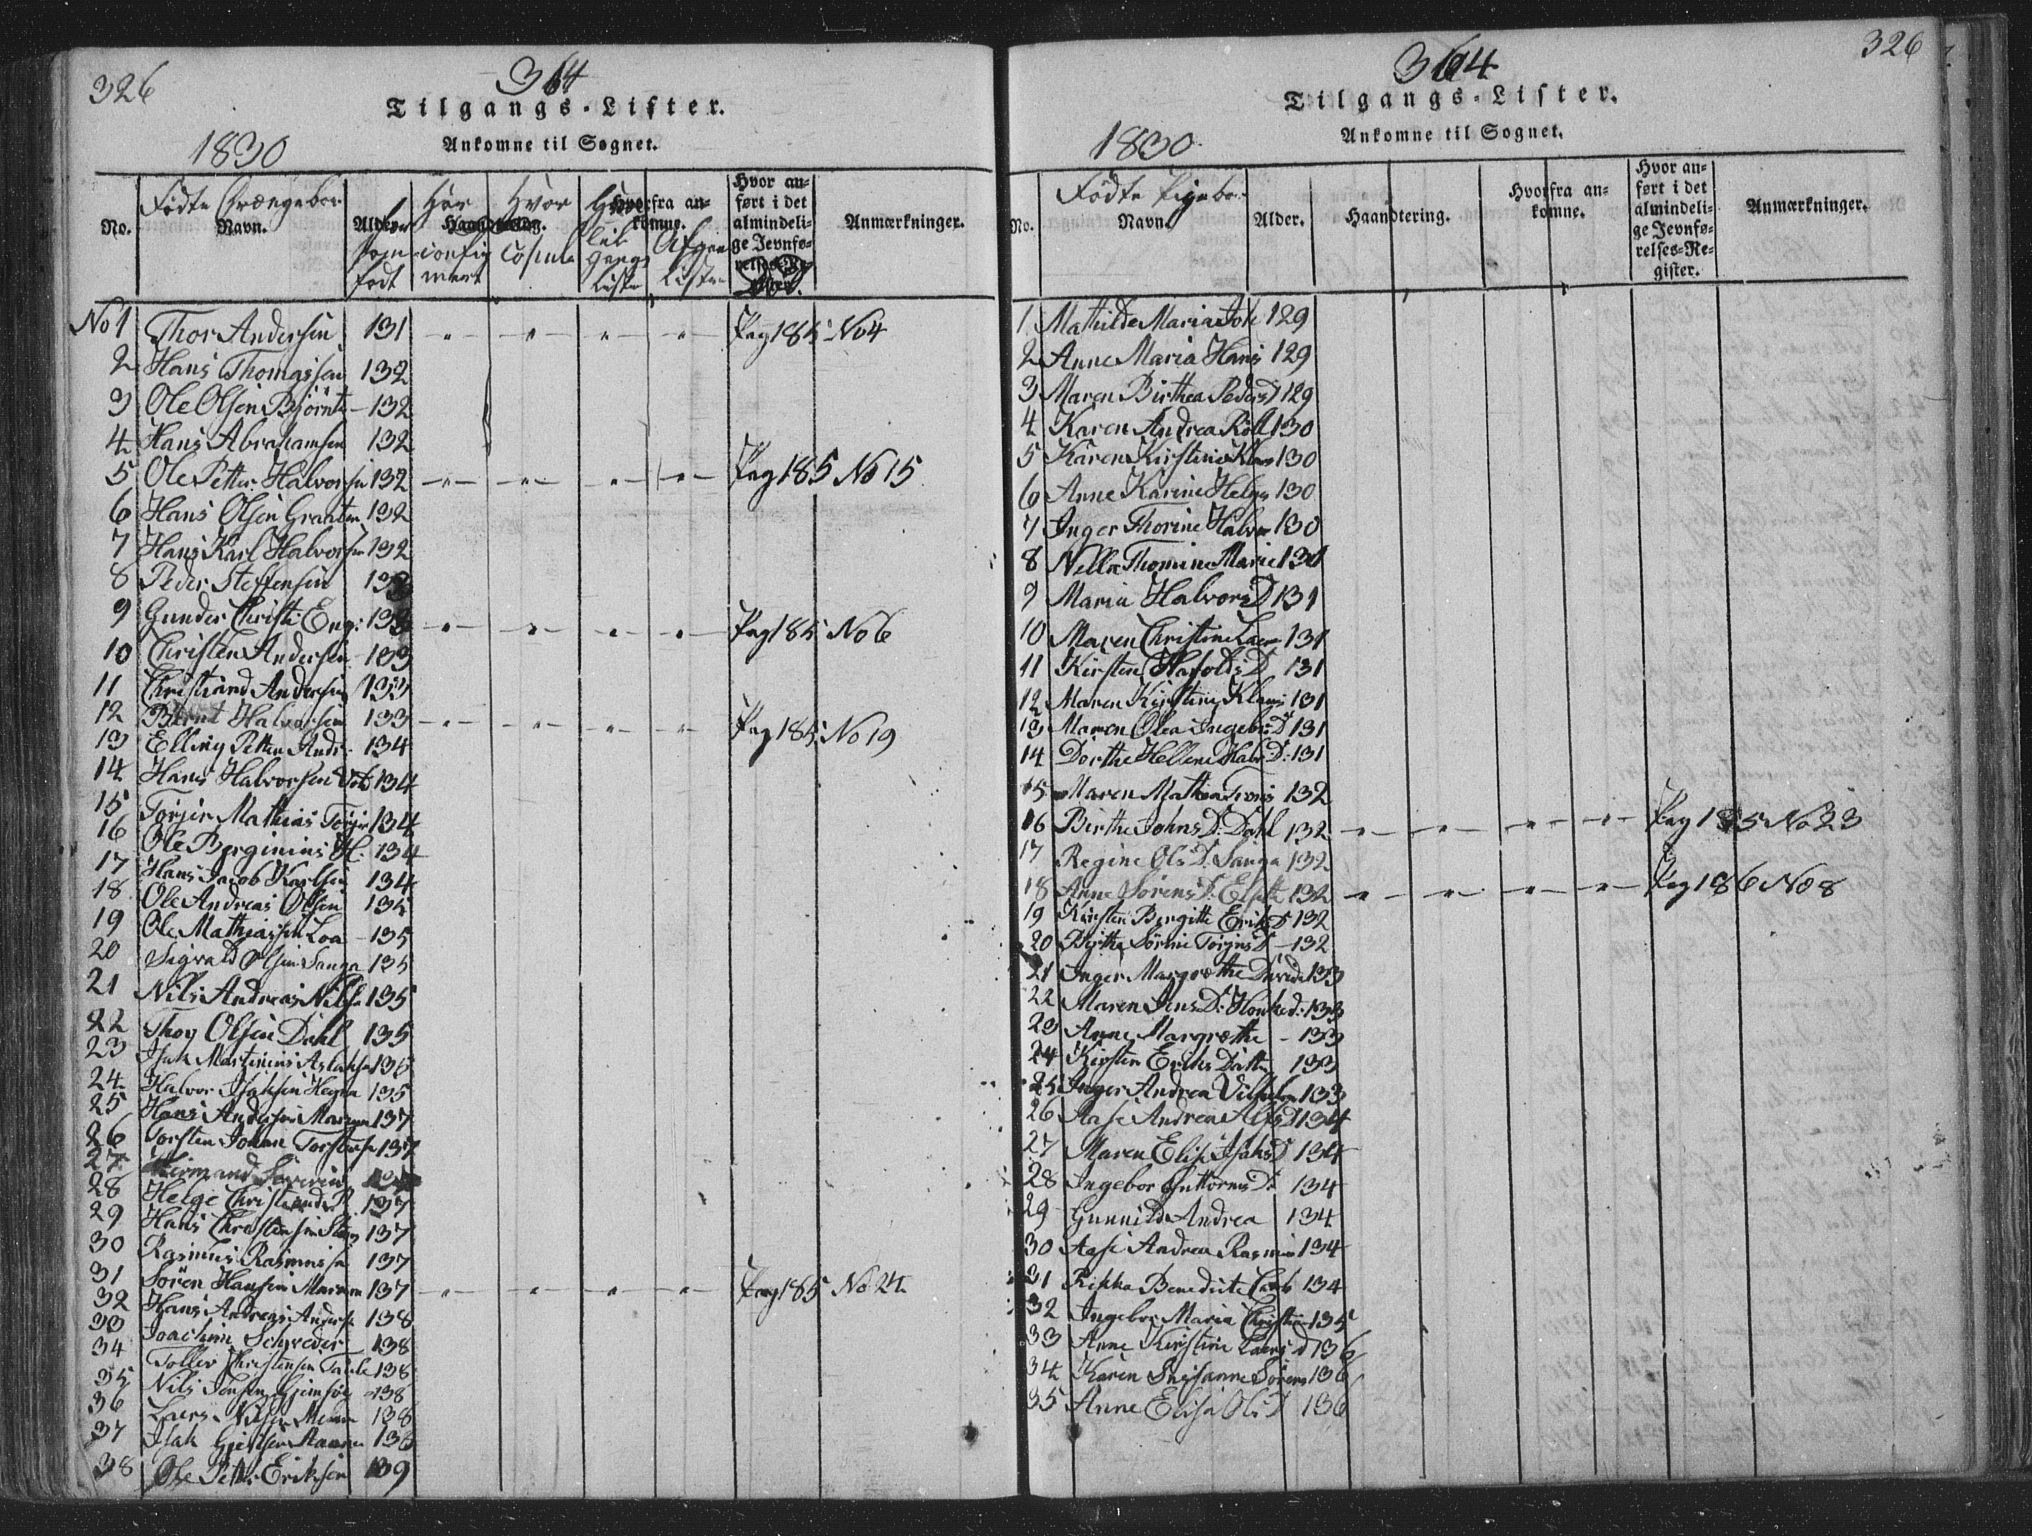 326
364
Tilgangs-Lister.
Ankomne til Sognet.
1830
No.
Fødte Drængebør
Navn.
Alder.
født
Haandtering.
Hvor
Hvorfra ankomne.
Til
gangs
Liste
Afgan
Liste
Hvor anført i det almindelige Jevnførelses-Register.
Anmærkninger.
No 1 Thor Andersen 131 Pag 185 No 4
2 Hans Thomassen 132
3 Ole Olsen Bjørnt 132
4 Hans Abrahamsen 132
5 Ole Petter Halvorsen 132 Pag 185 No 15
6 Hans Olsen Graaten 132
7 Hans Karl Halvorsen 132
8 Peder Steffensen 133
9 Gunder Christi Eng: 133 Pag 185 No 6
10 Christen Andersen 133
11 Christiand Andersen 133
12 Bernt Halvorsen 133 Pag 185 No 19
13 Elling Petter Andr 134
14 Hans Halvorsen 134
15 Torjer Mathias Torjer 134
16 Ole Berginius H: 134
17 Hans Jacob Karlsen 134
18 Ole Andreas Olsen 135
19 Ole Mathiassen Loa 135
20 Sigvald Olsen Sanga 135
21 Nils Andreas Nilse 135
22 Thov Olsen Dahl 135
23 Isak Martinius Aslakse 135
24 Halvor Isaksen Hegna 135
25 Hans Andersen 137
26 Torsten Johan Torstense 137
27
28 Helge Christiander 137
29 Hans Christensen 137
30 Rasmus Rasmusse 137
31 Søren Hansen 137 Pag 185 No 24
32 Hans Andreas Anderse 138
33 Joachim Schrøder 138
34 Tollev Christensen 138
35 Nils Jensen Gjemsøe 138
36 Laers Nilsen 138
37 Isak 138
38 Ole Petter Eriksen 139
326
364
Tilgangs-Lister.
Ankomne til Sognet.
1830
No.
Fødte Pigebør
Navn.
Alder.
Haandtering.
Hvorfra ankomne.
Hvor anført i det almindelige Jevnførelses-Register.
Anmærkninger.
1 Mathilde Maria 129
2 Anne Maria Hans 129
3 Maren Birthea Peders D 129
4 Karen Andrea 130
5 Karen Kirstine Klaus 130
6 Anne Karine Helge 130
7 Inger Thorine Halvor 130
8 Nella Thomine Marie 131
9 Maria Halvors D 131
10 Maren Christine Laers 131
11 Kirsten D 131
12 Maren Kirstine Klaus 131
13 Maren Olea Ingebr: D 131
14 Dorthe Hellene Halv: D: 131
15 Maren Mathea 132
16 Birthe Johns D: Dahl 132 Pag 185 No 23
17 Regine Ols D. Sanga 132
18 Anne Sørens D: 132 Pag 186 No 8
19 Kirsten Bergitte Eriks D 132
20 Birthe Sørine Torjers D 132
21 Inger Margrethe Davids 133
22 Maren Jens D: 133
23 Anne Margrethe 133
24 Kirsten Eriks Datter 133
25 Inger Andrea Vilhelm 133
26 Aase Andrea Alfs D 134
27 Maren Elise Isaks D 134
28 Ingebor Guttorms D: 134
29 Gunnild Andrea 134
30 Aase Andrea Rasmus 134
31 Rikka Benedicte 134
32 Ingebor Maria Christian 135
33 Anne Kirstine Laers D 136
34 Karen Susanne Sørens 136
35 Anne Elise Ols D 136